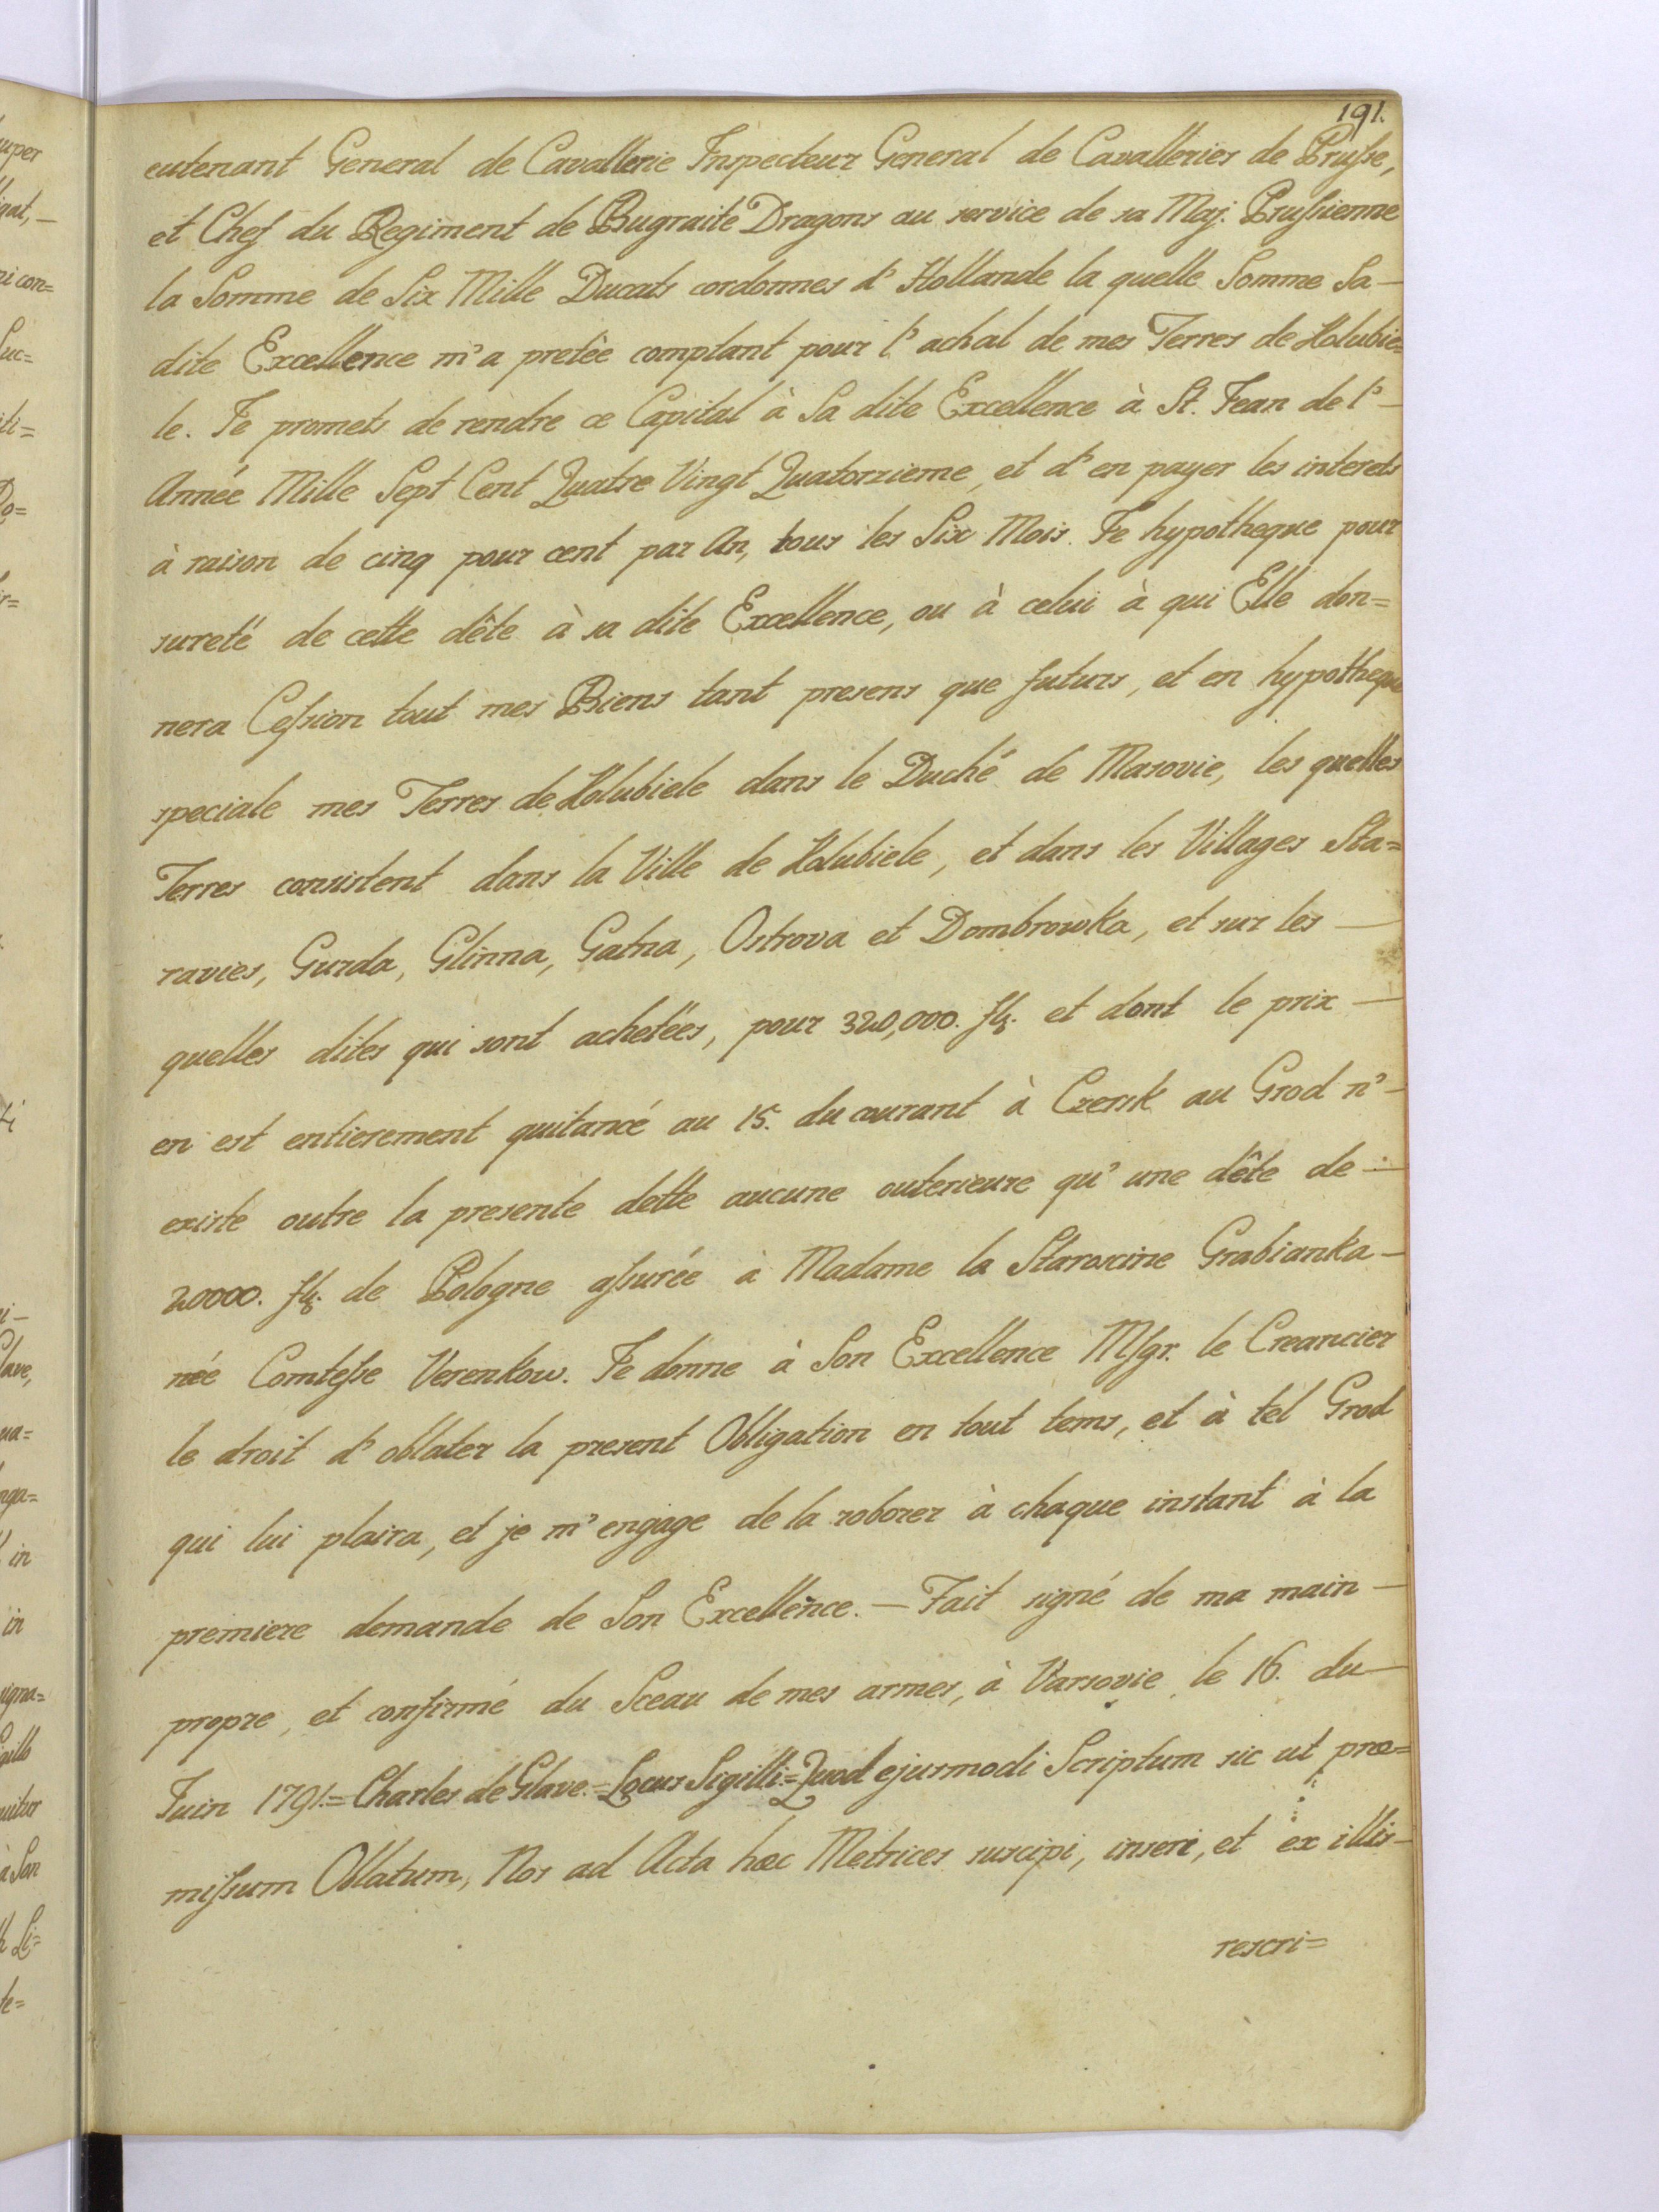 191.
eutenant General de Cavallerie Inspecteur General de Cavalleries de Prusse,
et Chef du Regiment de Bugraité Dragons au service de sa Maj. Prussienne
la Somme de Six Mille Ducats cordonnes d'Hollande la quelle Somme Sa—
dite Excellence m'a pretée comptant pour l'achat de mes Terres de Kolubie=
le. Je promets de rendre ce Capital à Sa dite Excellence à St. Jean de l'—
Année Mille Sept Cent Quatre Vingt Quatorzieme, et d'en payer les interets
à raison de cinq pour cent par An, tous les Six Mois. Je hypotheque pour
sureté de cette dête à sa dite Excellence, ou à celui à qui Elle don=
nera Cession tout mes Biens tant presens que futurs, et en hypotheque
speciale mes Terres de Kolubiele dans le Duché de Masovie, les quelles
Terres consistent dans la Ville de Kolubiele, et dans les Villages Sta=
ravies, Gurda, Glinna, Gatna, Ostrova et Dombrowka, et sur les —
quelles dites qui sont achetées, pour 320,000. fl. et dont le prix —
en est entierement quitancé au 15. du courant à Czersk au Grod n'—
existé outre la presente dette aucune outerieure qu'une dête de —
20000. fl. de Pologne assurée à Madame la Staroscine Grabianka —
née Comtesse Verenkow. Je donne à Son Excellence Msgr. le Creancier
le droit d'oblater la present Obligation en tout tems, et à tel Grod
qui lui plaira, et je m'engage de la roborer à chaque instant à la
premiere demande de Son Excellence. — Fait signé de ma main —
propre, et confirmé du Sceau de mes armes, à Varsovie le 16. du —
Juin 1791.= Charles de Glave.= Locus Sigilli.= Quod ejusmodi Scriptum sic ut præ=
missum Oblatum, Nos ad Acta hæc Metrices suscipi, inseri, et ex illis —
rescri=